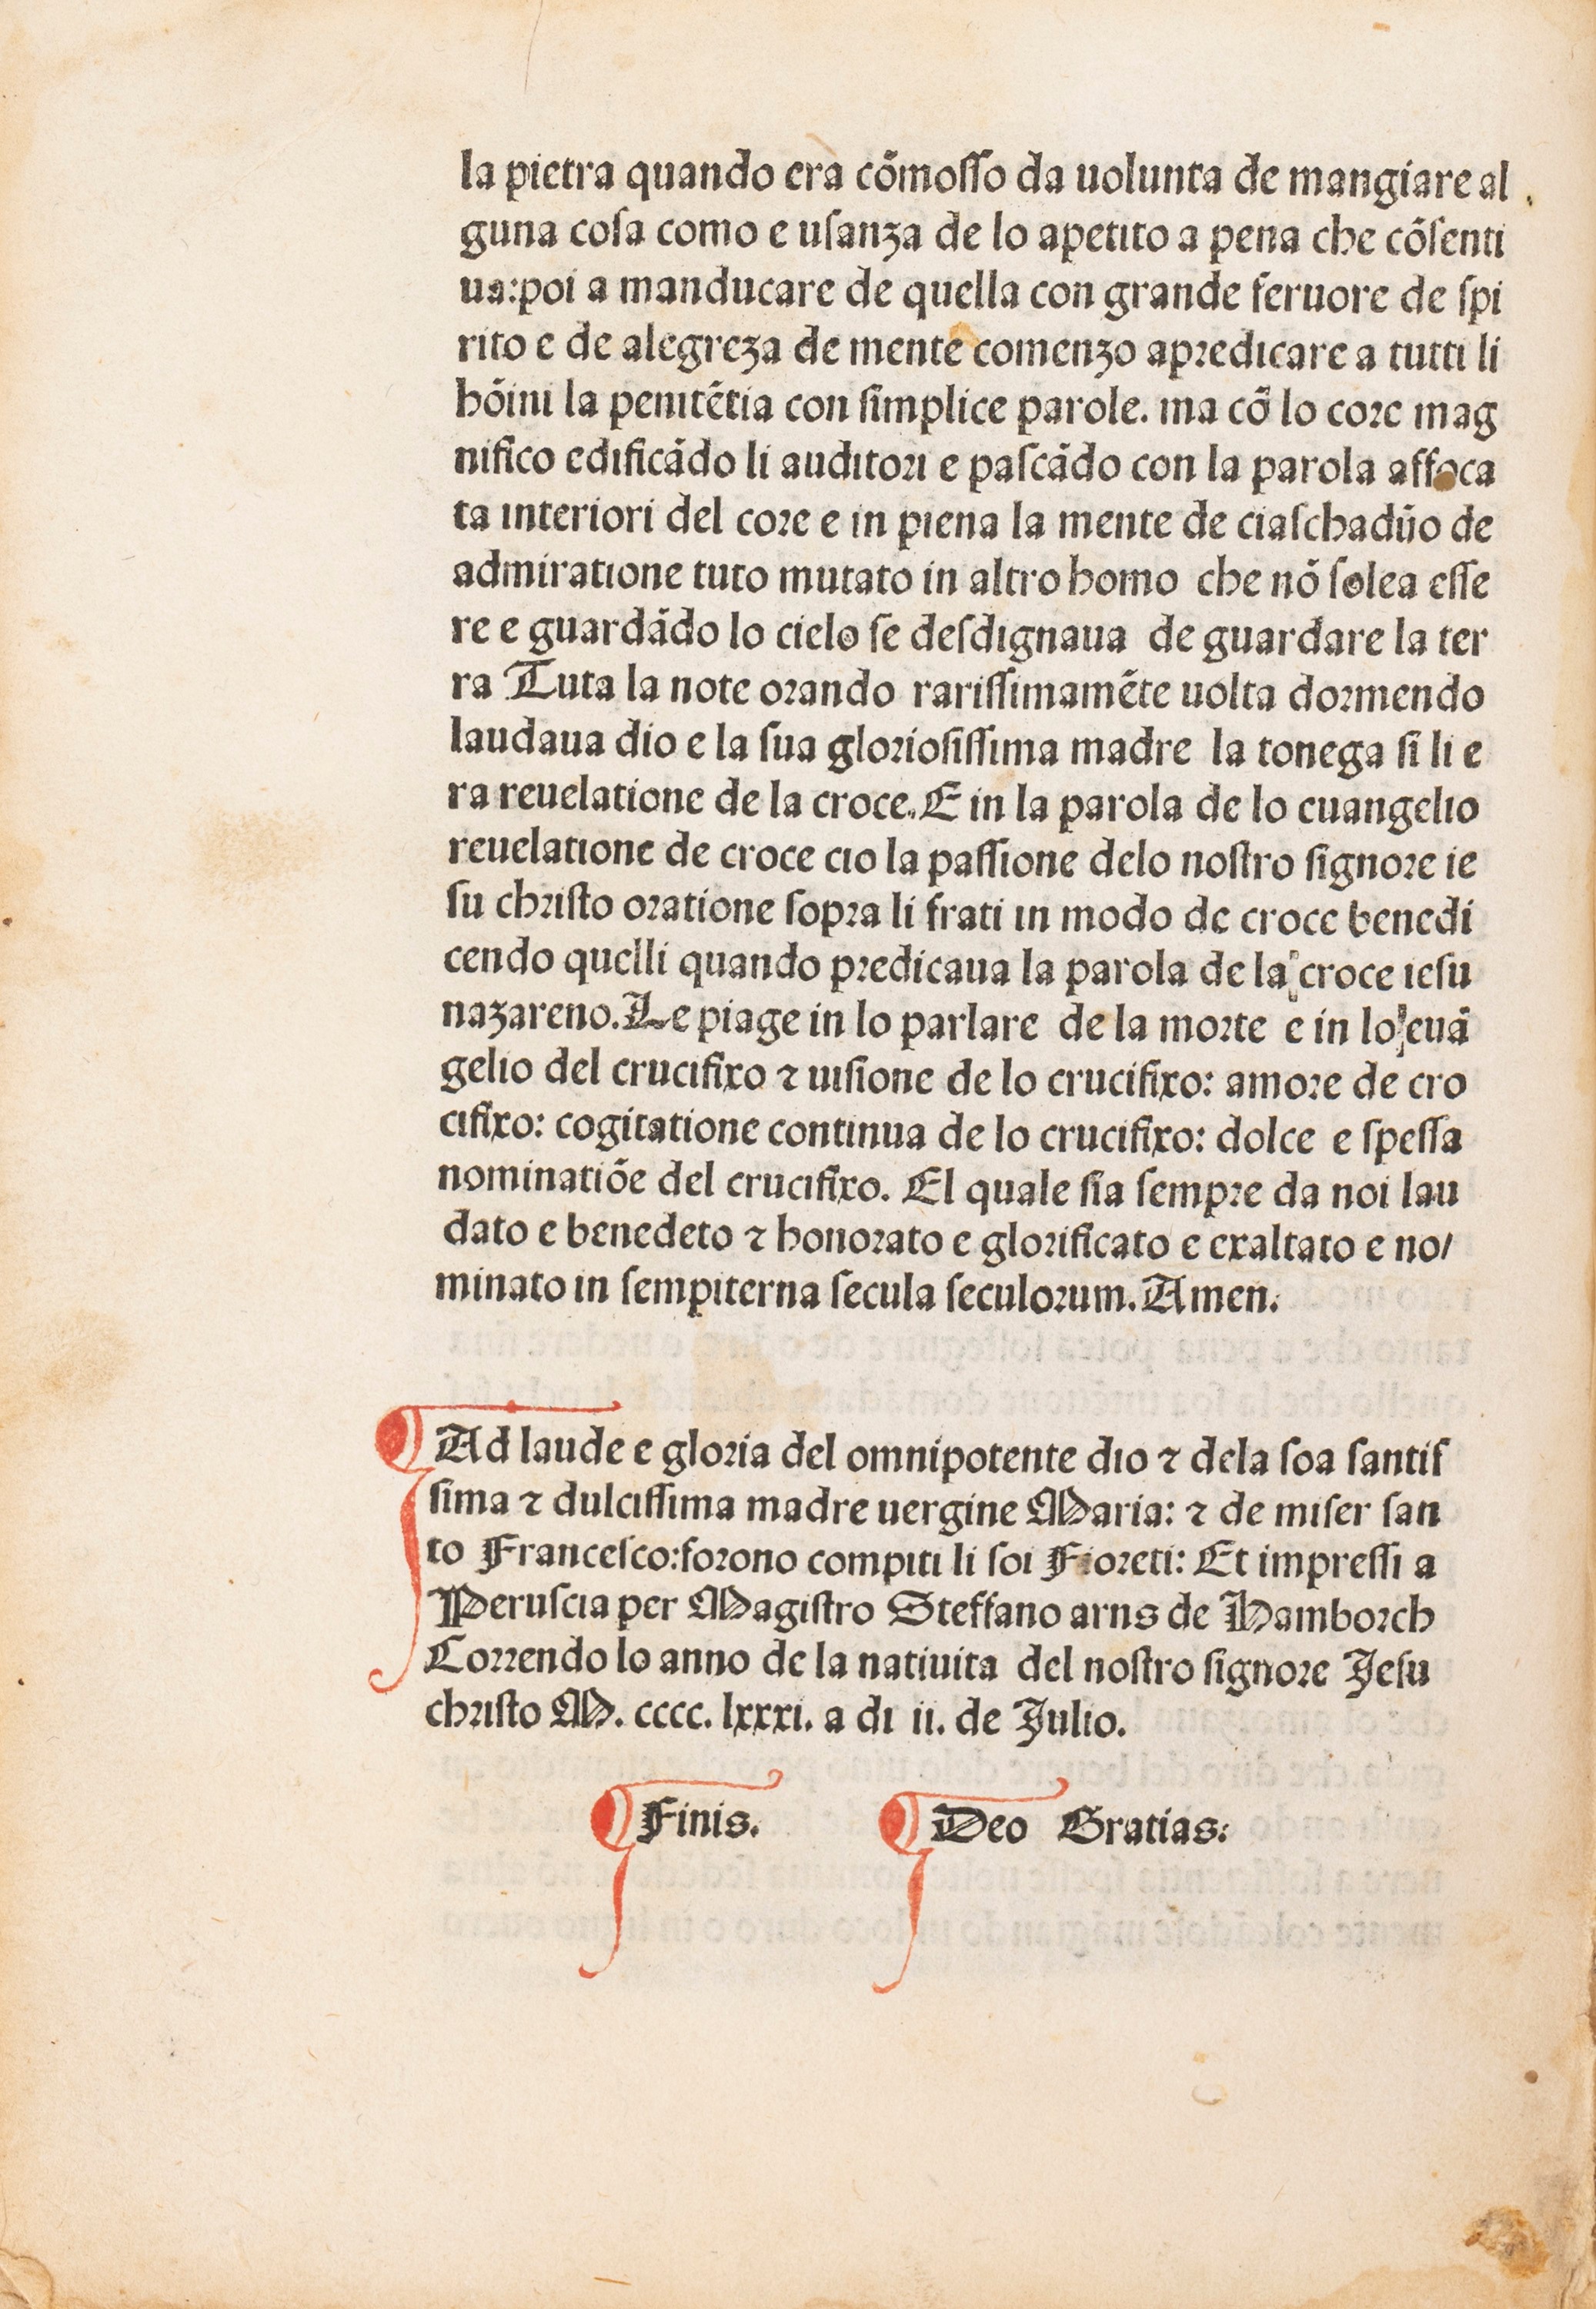 la pietra quando era cõmoſſo da uolunta de mangiare al
guna coſa como e uſanza de lo apetito a pena che cõſenti
ua:poi a manducare de quella con grande feruore de ſpi
rito e de alegreza de mente comenzo apredicare a tutti li
hõini la penitẽtia con ſimplice parole. ma cõ lo core mag
nifico edificãdo li auditori e paſcãdo con la parola affoca
ta interiori del core e in piena la mente de ciaſchadũo de
admiratione tuto mutato in altro homo che nõ ſolea eſſe
re e guardãdo lo cielo ſe deſdignaua de guardare la ter
ra Tuta la note orando rariſſimamẽte uolta dormendo
laudaua dio e la ſua glorioſiſſima madre la tonega ſi li e
ra reuelatione de la croce. E in la parola de lo euangelio
reuelatione de croce cio la paſſione delo noſtro ſignore ie
ſu chriſto oratione ſopra li frati in modo de croce benedi
cendo quelli quando predicaua la parola de la croce ieſu
nazareno. Le piage in lo parlare de la morte e in lo euã
gelio del crucifixo ⁊ uiſione de lo crucifixo: amore de cro
cifixo: cogitatione continua de lo crucifixo: dolce e ſpeſſa
nominatiõe del crucifixo. El quale ſia ſempre da noi lau
dato e benedeto ⁊ honorato e glorificato e exaltato e no/
minato in ſempiterna ſecula ſeculorum. Amen.
Ad laude e gloria del omnipotente dio ⁊ dela ſoa ſantiſ
ſima ⁊ dulciſſima madre uergine Maria: ⁊ de miſer ſan
to Franceſco:forono compiti li ſoi Fioreti: Et impreſſi a
Peruſcia per Magiſtro Steffano arns de Hamborch
Correndo lo anno de la natiuita del noſtro ſignore Jeſu
chriſto M. cccc. lxxxi. a di ii. de Julio.
Finis. Deo Gratias: